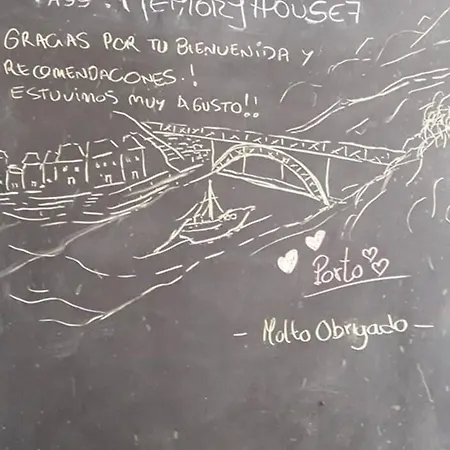 PASS: MEMORYHOUSE7
GRACIAS POR TU BIENVENIDA Y
RECOMENDACIONES.!
ESTUVIMOS MUY AGUSTO!!
Porto
- Molto Obrigado -